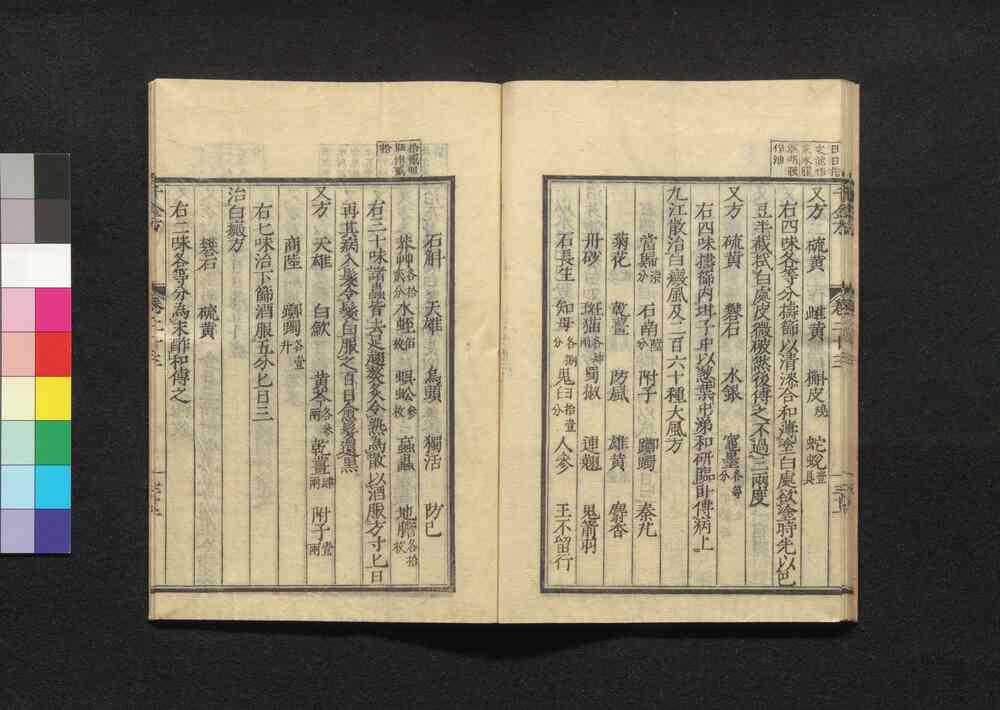 又方 硫黄 雌黄 槲皮燒 蛇蛻壹具
右四味各等分擣篩以清漆合和薄塗白處欲塗時先以巴
豆半截拭白處皮微破然後傅之不過三兩度
又方 硫黄 礬石 水銀 竈墨各等分
右四味擣篩內埦子中以葱葉中涕和研臨卧傅病上
九江散治白癜風及二百六十種大風方
當歸柒分 石南陸分 附子 躑躅 秦艽
菊花 乾薑 防風 雄黄 麝香
丹砂 斑猫各肆分 蜀椒 連翹 鬼箭羽
石長生 知母各捌分 鬼臼拾壹分 人參 王不留行
石斛 天雄 烏頭 獨活 防己
莽草各拾貳分 水蛭佰枚 蜈蚣參枚 蝱蟲 地膽各拾枚
右三十味諸蟲皆去足翅熬炙令熟為散以酒服方寸匕日
再其病入髮令髮白服之百日愈髮還黑
又方 天雄 白歛 黄芩各參兩 乾薑肆兩 附子壹兩
商陸 躑躅各壹升
右七味治下篩酒服五分匕日三
治白癜方
礬石 硫黄
右二味各等分為末酢和傅之